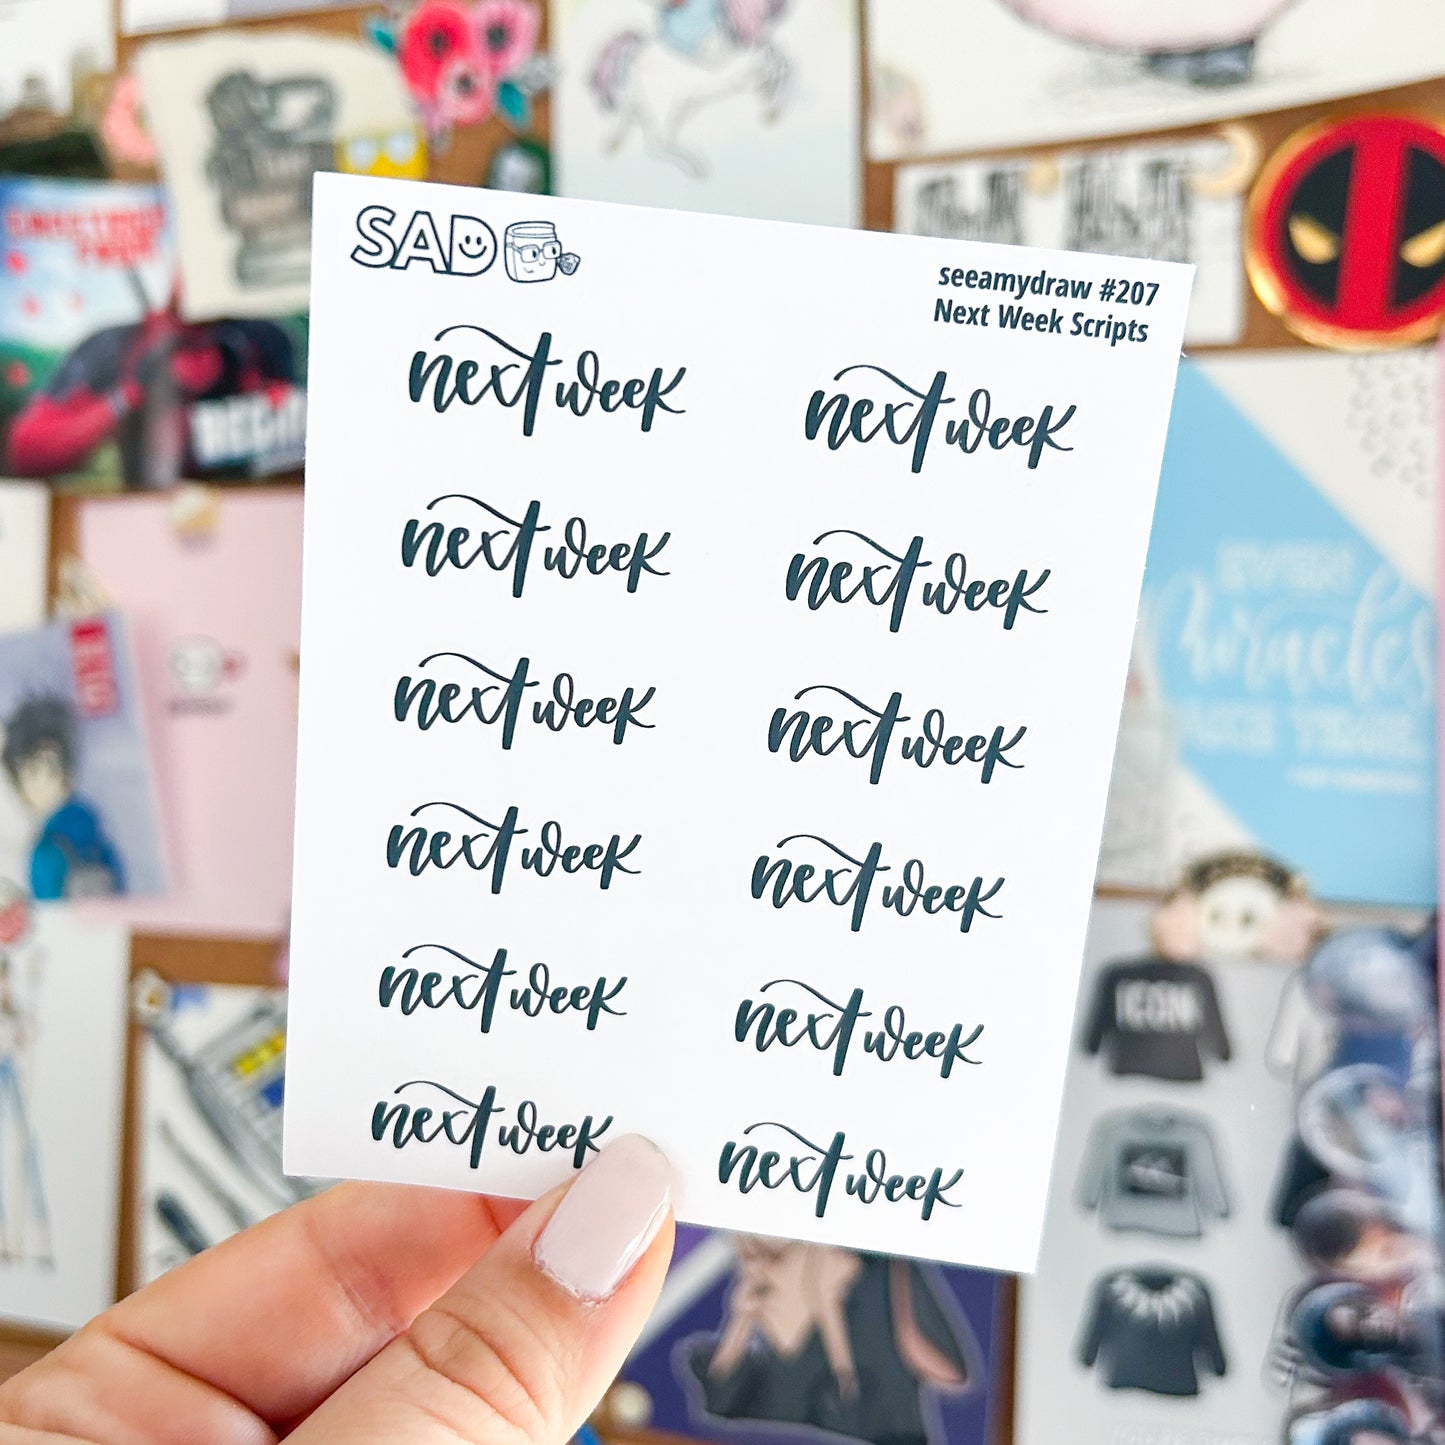 SAD
seeamydraw #207
Next Week Scripts
next week next week
next week next week
next week next week
next week next week
next week next week
next week next week
EVEN
miracles
TIME
ICON